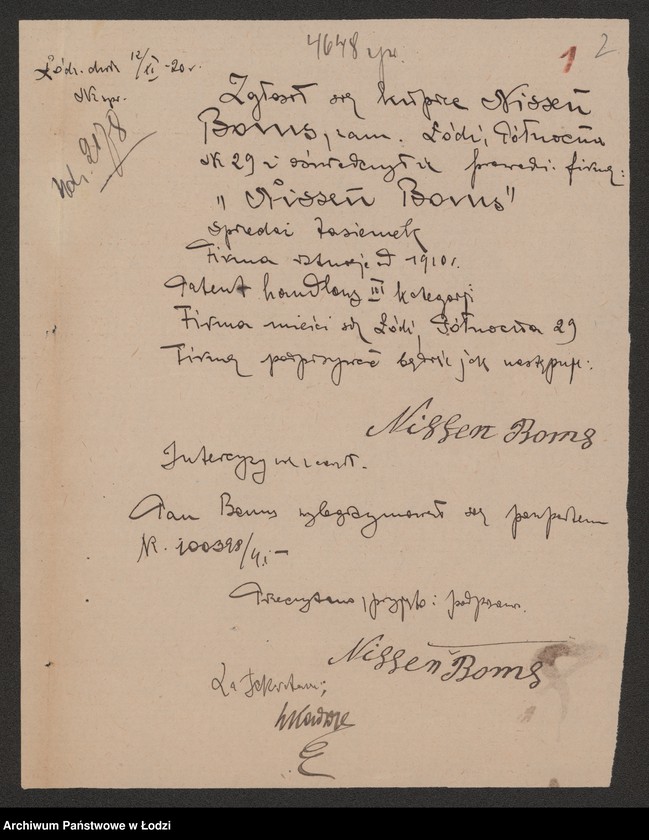 4648
1 2
Łódź, dnia 12/II -20 r.
Nr
2178
Zgłosił się kupiec Nissen
Boms, zam. Łódź, Północna
Nr 29 i oświadczył iż prowadzi firmę:
"Nissen Boms"
sprzedaż tasiemek
Firma istnieje od 1910 r.
Patent handlowy III kategorji
Firma mieści się Łódź, Północna 29
Firmę podpisywać będzie jak następuje:
Nissen Boms
Intercyzy nie zawarł.
Pan Boms wylegitymował się paszportem
Nr. 100398/41
Przeczytano, przyjęto i podpisano.
Nissen Boms
Za Sekretarz:
Archiwum Państwowe w Łodzi